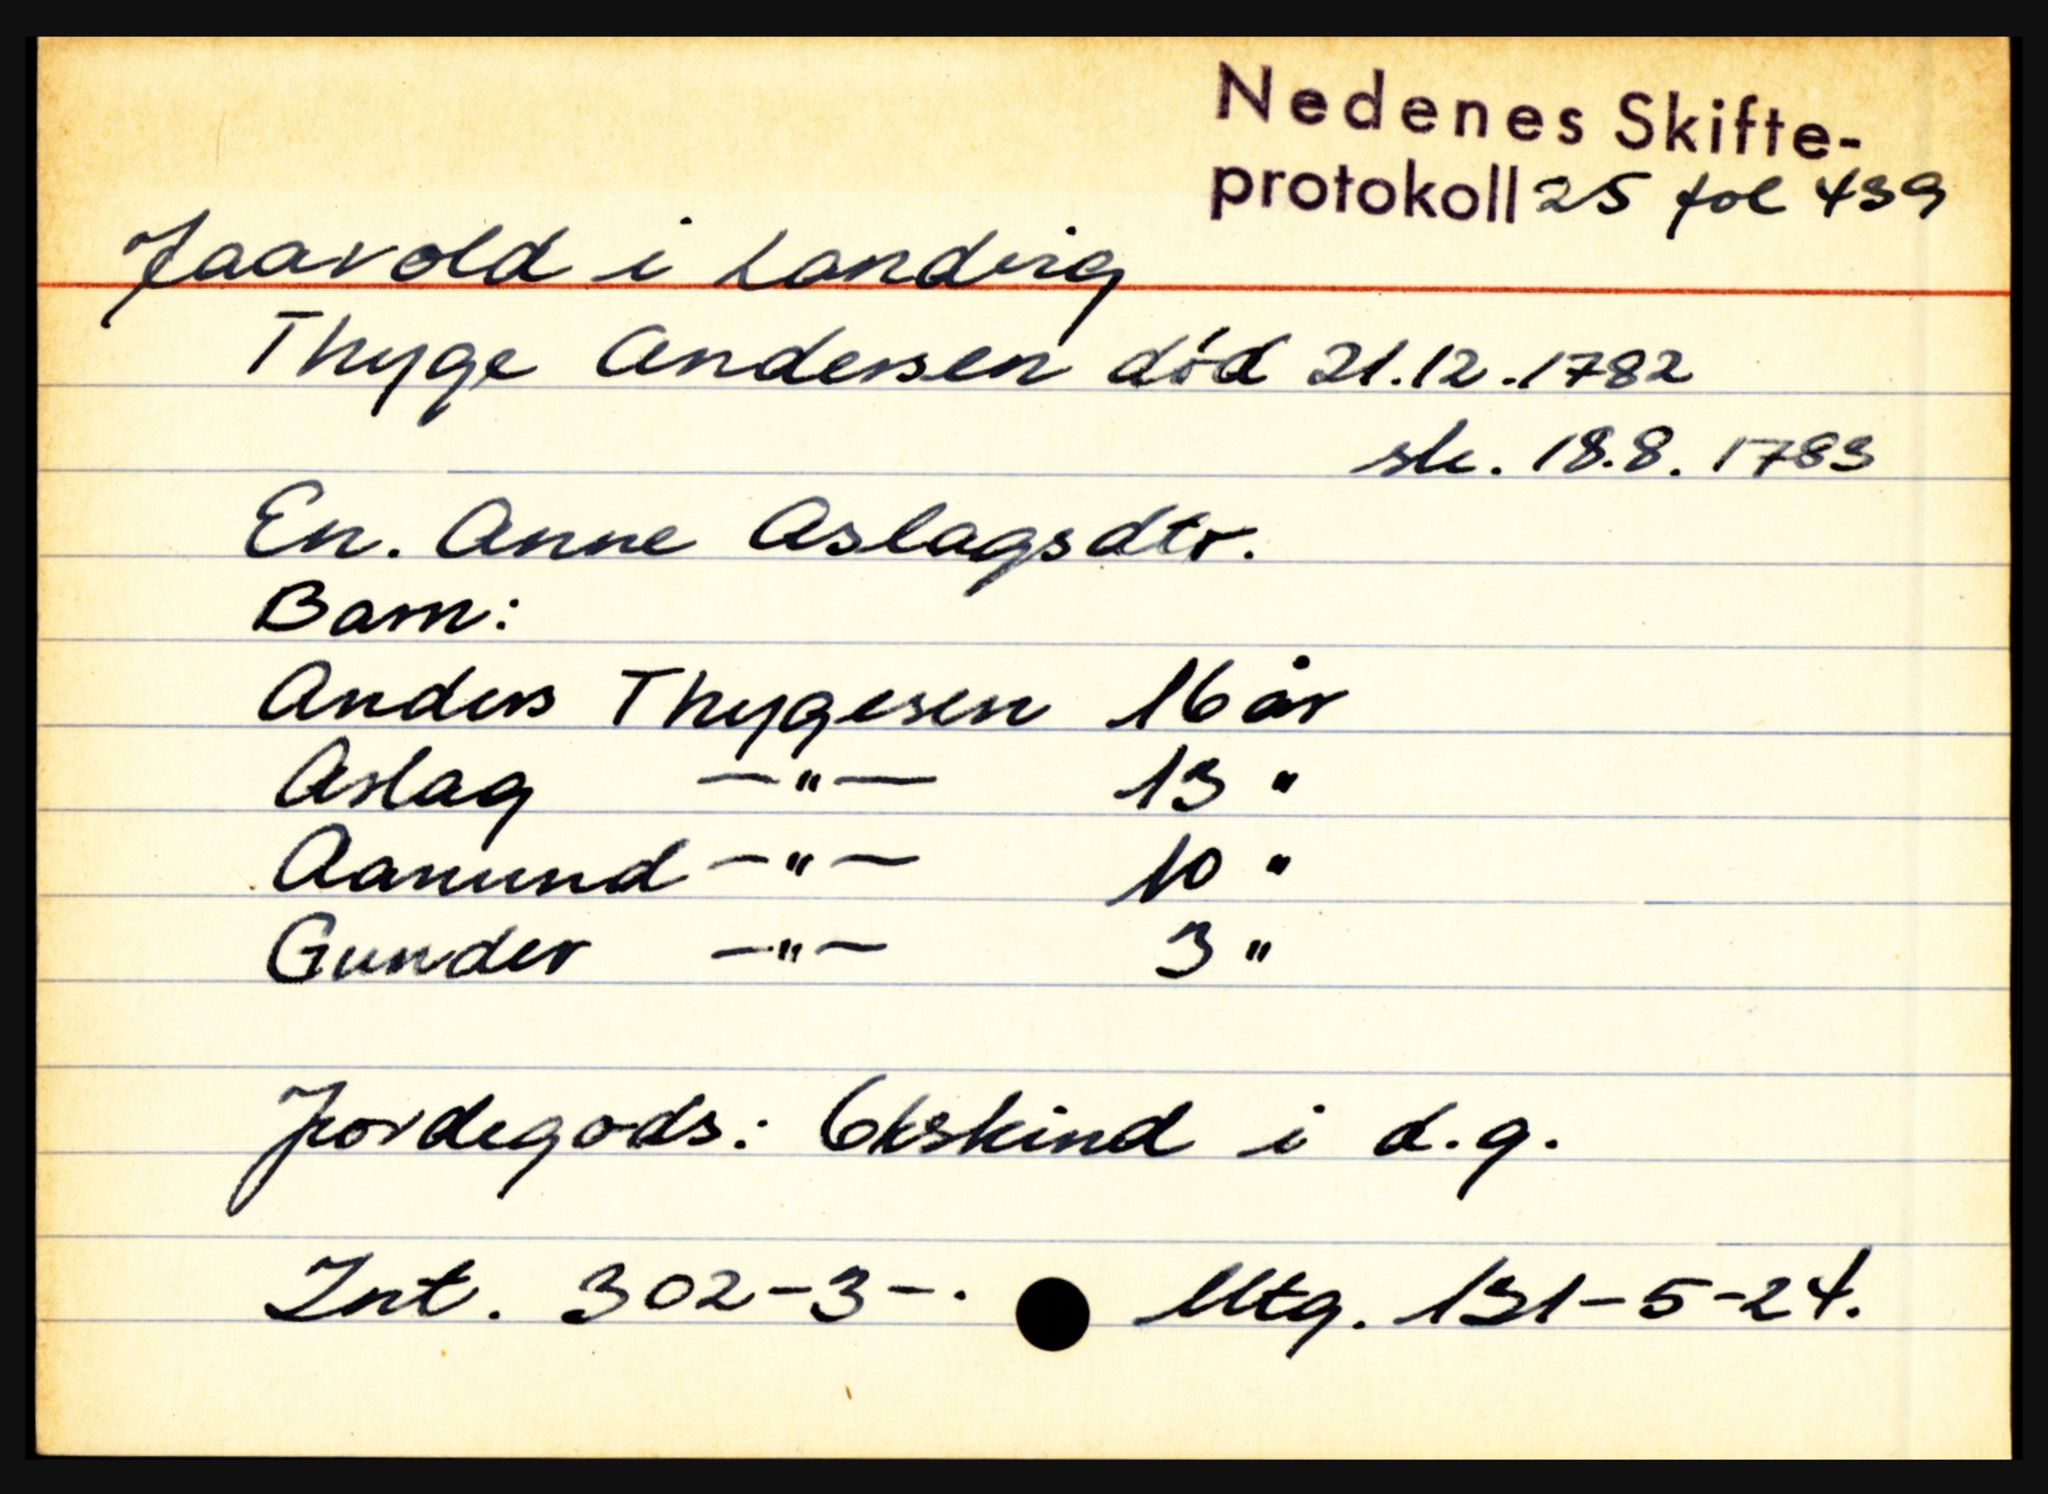 Nedenes Skifte-
protokoll 25 fol 439
Jaavold i Landvig
Thyge Andersen död 21.12.1782
sk. 18.8.1783
En. Anne Aslagsdtr.
Barn:
Anders Thygesen 16 år
Aslag —"— 13 "
Aamund —"— 10 "
Gunder —"— 3 "
Jordegods: 6 kskind i d.g.
Int. 302-3-. Utg. 131-5-24.